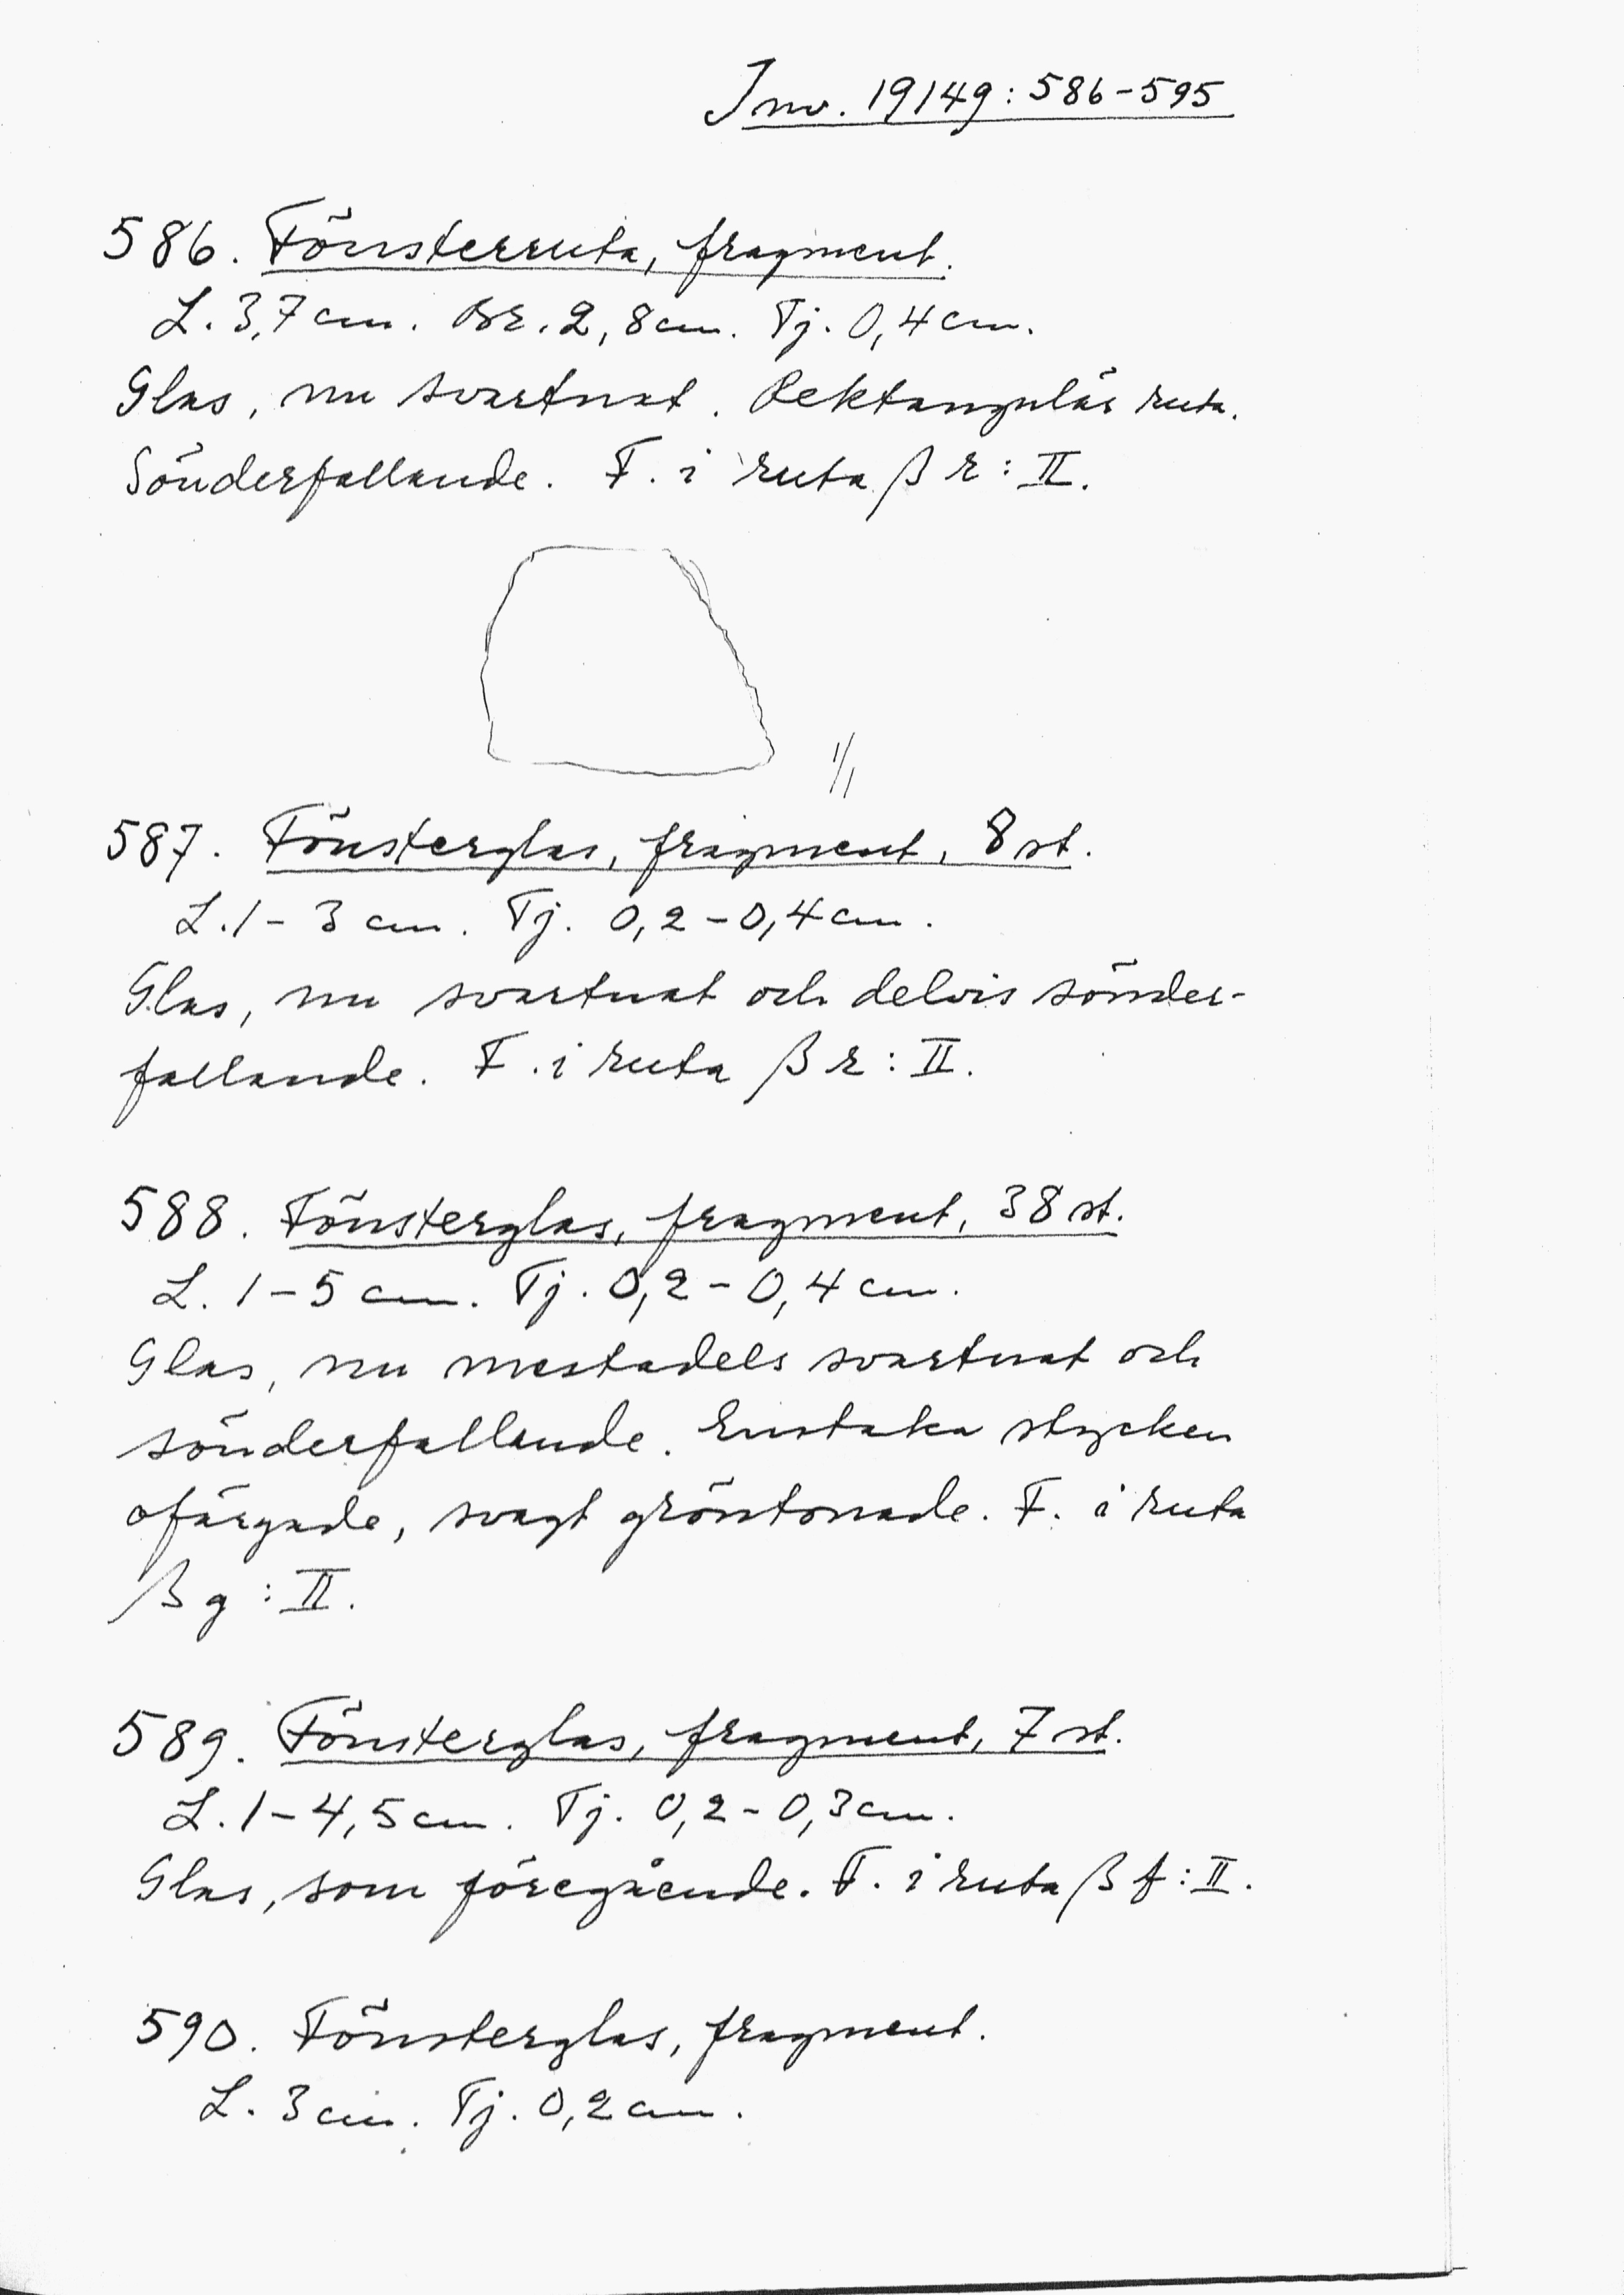 Inv. 19149:586-595
586. Fönsterruta, fragment.
L. 3,7 cm. Br. 2,8 cm. Tj. 0,4 cm.
Glas, nu svartnat. Rektangulär ruta.
Sönderfallande. F. i ruta β r:II.
1/1
587. Fönsterglas, fragment, 8 st.
L. 1-3 cm. Tj. 0,2-0,4 cm.
Glas, nu svartnat och delvis sönder-
fallande. F. i ruta β r:II.
588. Fönsterglas, fragment, 38 st.
L. 1-5 cm. Tj. 0,2-0,4 cm.
Glas, nu mestadels svartnat och
sönderfallande. Enstaka stycken
ofärgade, svagt gröntonade. F. i ruta
β g:II.
589. Fönsterglas, fragment, 7 st.
L. 1-4,5 cm. Tj. 0,2-0,3 cm.
Glas, som föregående. F. i ruta β f:II.
590. Fönsterglas, fragment.
L. 3 cm. Tj. 0,2 cm.